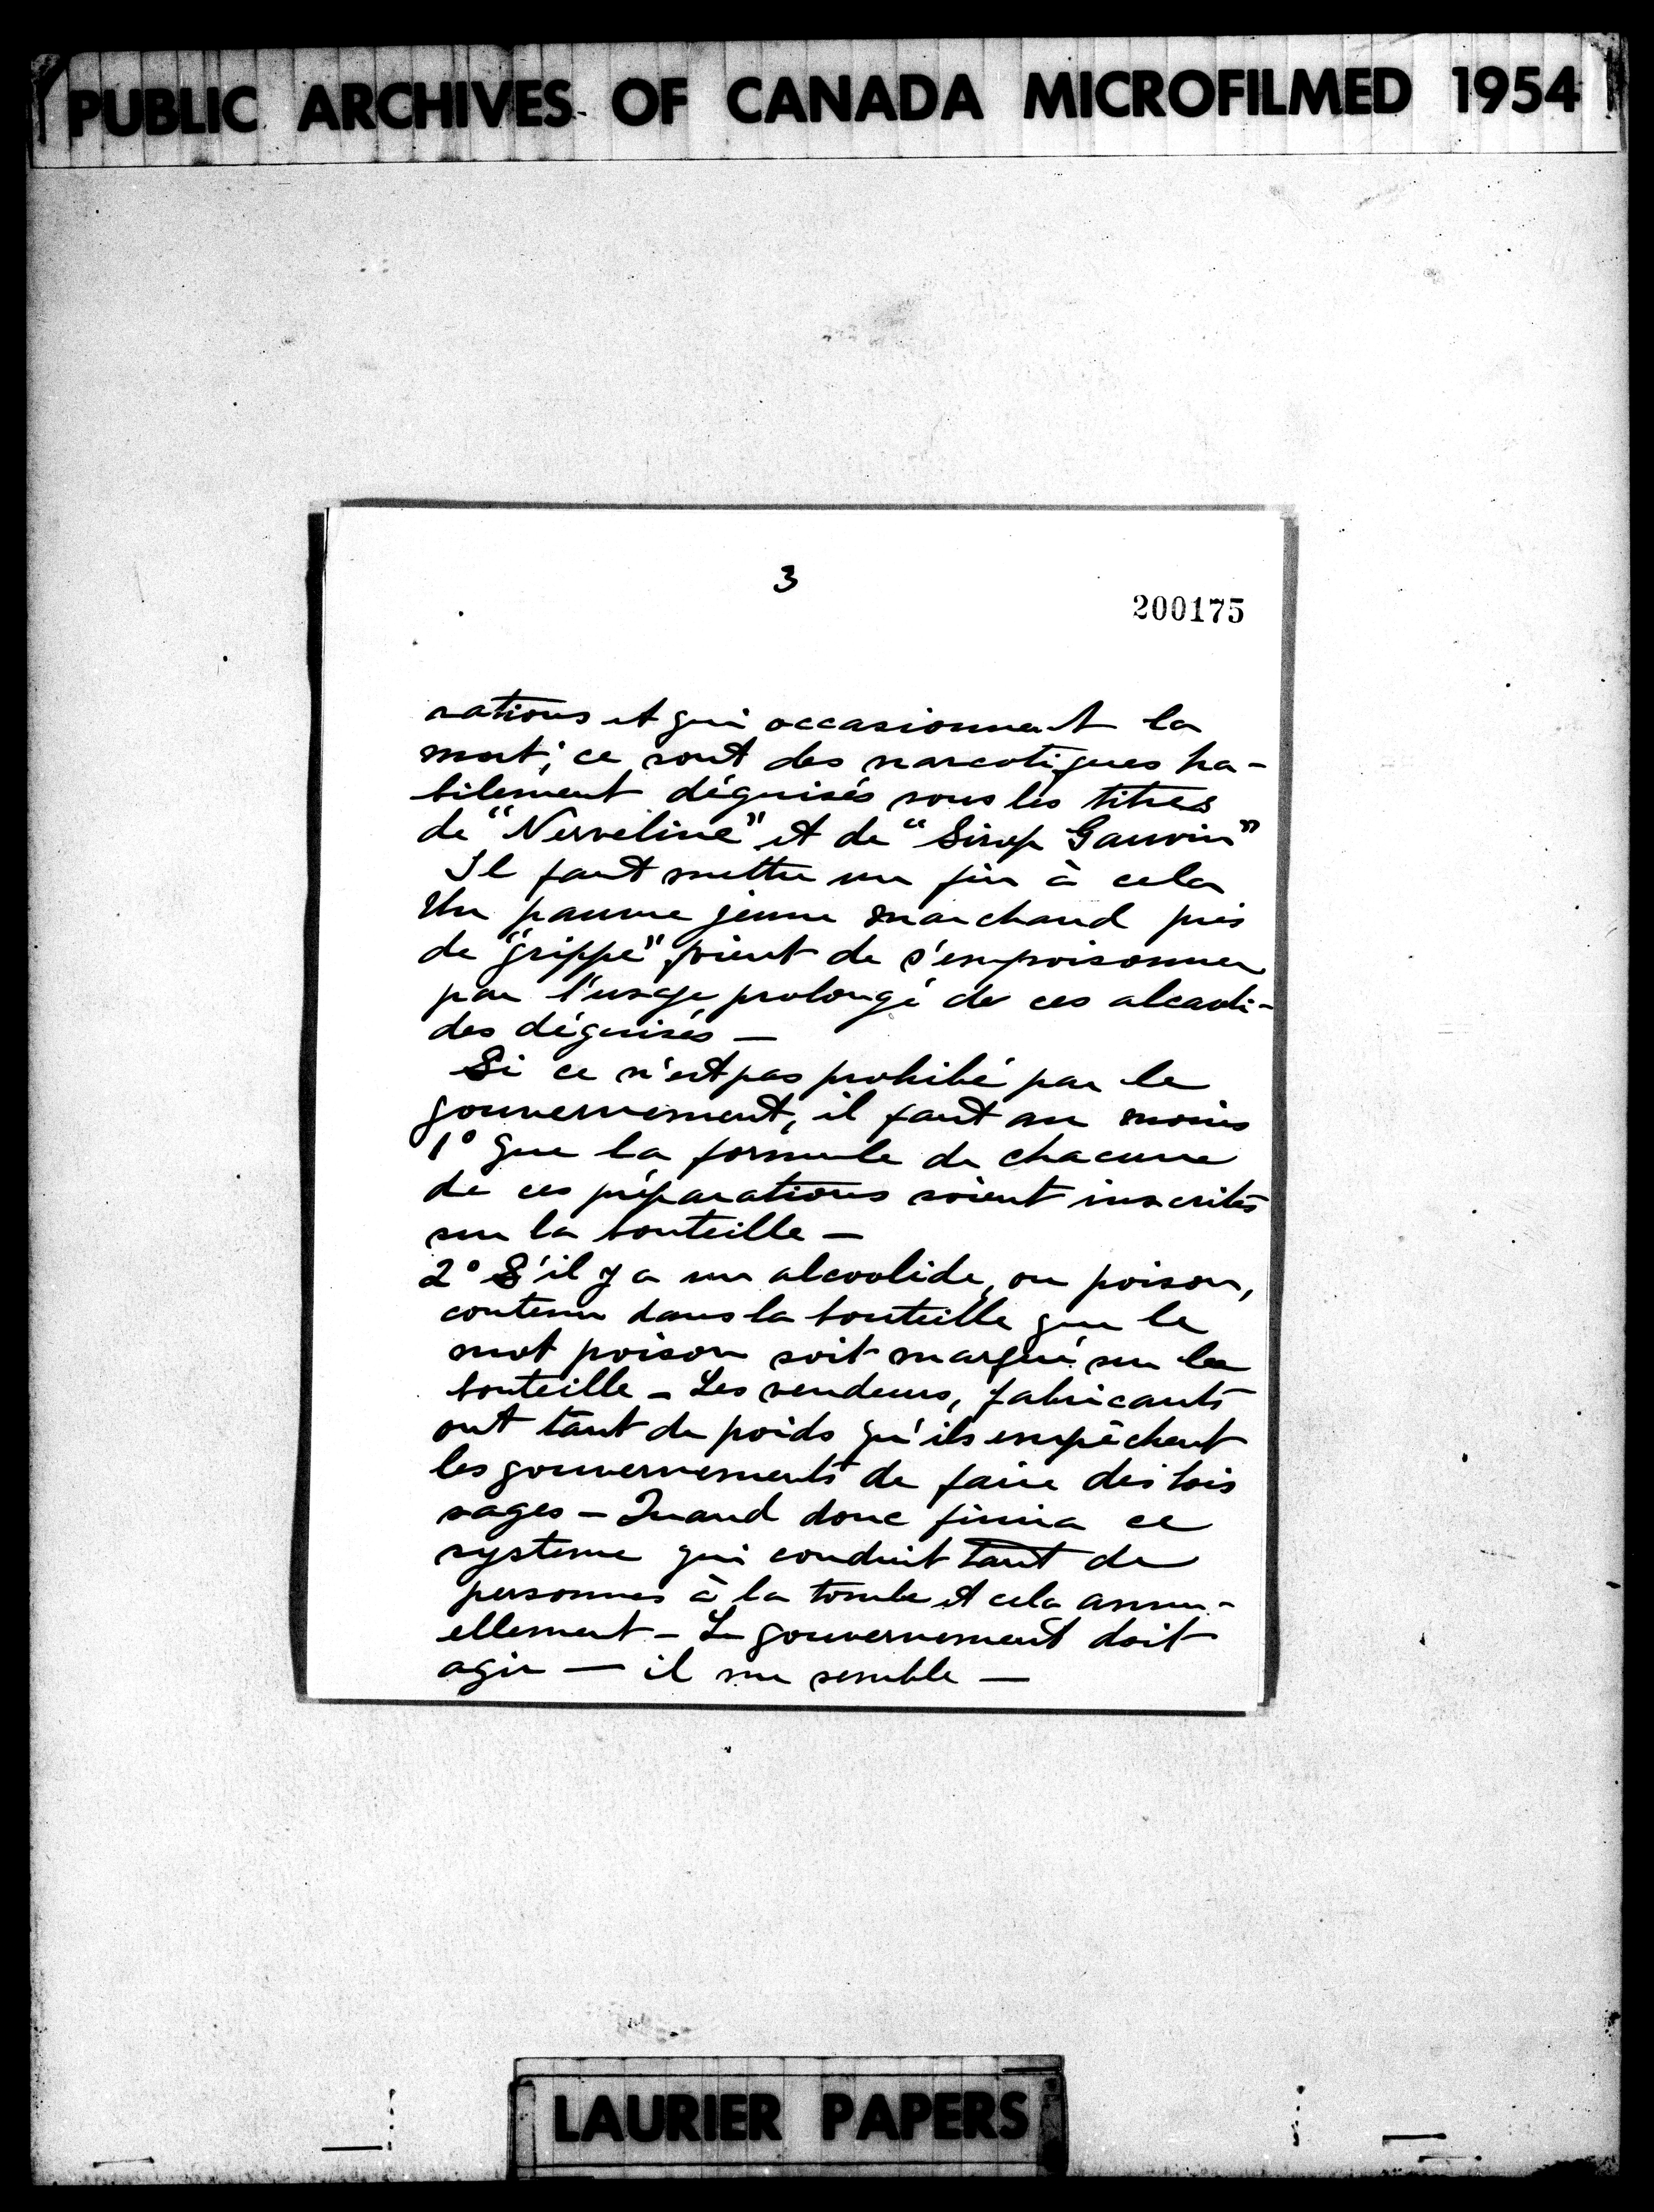 PUBLIC ARCHIVES OF CANADA MICROFILMED 1954
3
200175
rations et qui occasionnent la
mort; ce sont des narcotiques ha-
bilement déguisés sous les titres
de "Nerveline" et de "Sirop Gauvin"
Il faut mettre une fin à cela
Un pauvre jeune marchand pris
de "grippe" vient de s'empoisonner
par l'usage prolongé de ces alcaoli-
des déguisés —
Si ce n'est pas prohibé par le
gouvernement, il faut au moins
1° que la formule de chacune
de ces préparations soient inscrites
sur la bouteille —
2° S'il y a un alcoolide, ou poison,
contenu dans la bouteille que le
mot poison soit marqué sur la
bouteille — Les vendeurs, fabricants
ont tant de poids qu'ils empêchent
les gouvernements de faire des lois
sages — Quand donc finira ce
systeme qui conduit tant de
personnes à la tombe et cela annu-
ellement — Le gouvernement doit
agir — il me semble —
LAURIER PAPERS